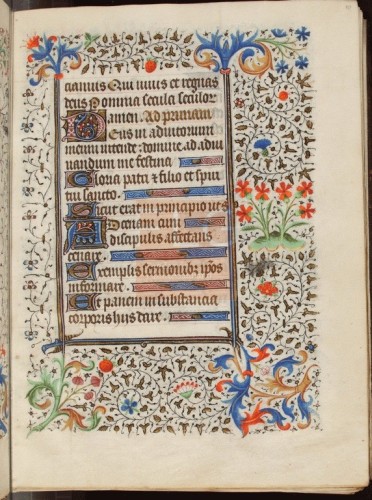 camus Qui uiuis et regnas
deus P omnia secula seculor
amen. Ad primam
Deus in adiutorium
meum intende: domine ad adiu
uandum me festina
Gloria patri & filio et spiri
tui sancto.
Sicut erat in principio
AD cenam cum
discipulis affectans
cenare.
Exemplis sermonibz ipos
informare.
Se panem in substancia
corporis huius dare.